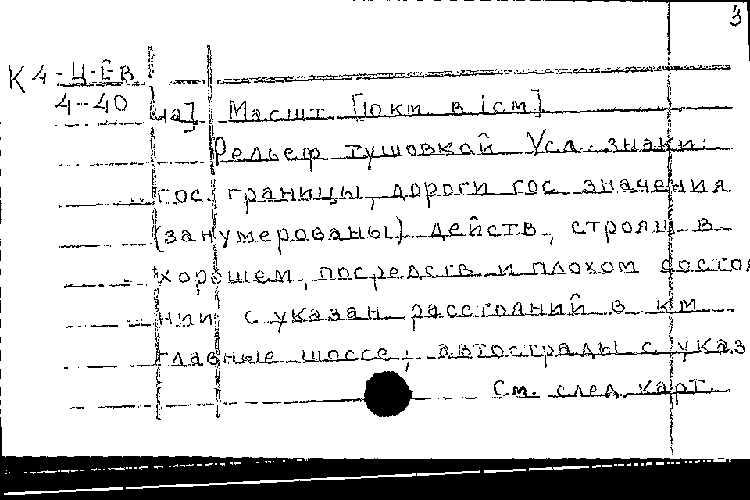 3
К 4-Ц-Ев
4-40
на] Масшт. [10км в 1см]
Рельеф тушовкой Усл. знаки:
гос. границы, дороги гос. значения
(занумерованы) действ., строящ в
хорошем, посредств и плохом состоя
нии с указан. расстояний в км
главные шоссе, автострады с указ
См. след. карт.